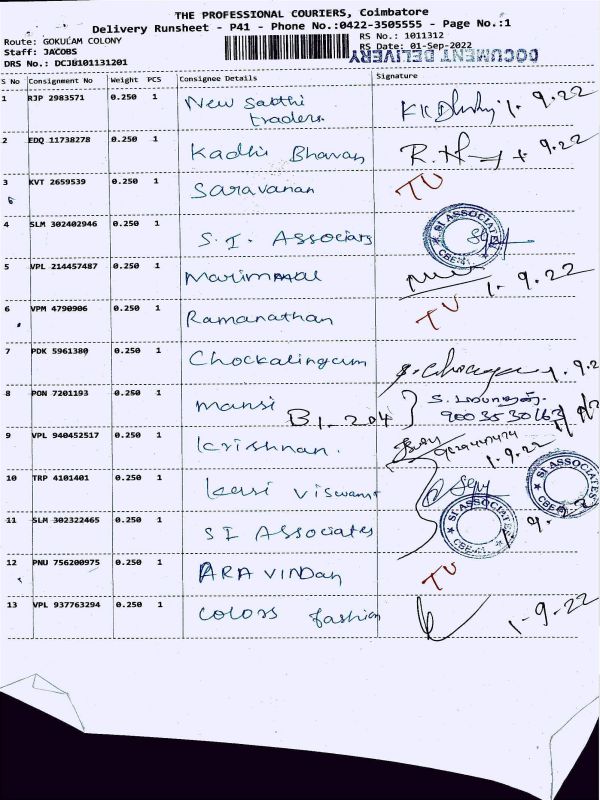 THE PROFESSIONAL COURIERS, Coimbatore
Delivery Runsheet - P41 - Phone No.:0422-3505555 - Page No.:1
Route: GOKULAM COLONY
RS No.: 1011312
Staff: JACOBS
RS Date: 01-Sep-2022
DOCUMENT DELIVERY
DRS No.: DCJB101131201
S No Consignment No Weight PCS Consignee Details Signature
1 RJP 2983571 0.250 1 New Sakthi traders 1.9.22
2 EDQ 11738278 0.250 1 Kadhi Bhavan 9.22
3 KVT 2659539 0.250 1 Saravanan TU
4 SLM 302402946 0.250 1 S.I. Associats SI ASSOCIATES CBE-41
5 VPL 214457487 0.250 1 Marimmal 1.9.22
6 VPM 4790906 0.250 1 Ramanathan TU
7 PDK 5961380 0.250 1 Chockalingam 1.9.22
8 PON 7201193 0.250 1 mansi B1-204 9003530163
9 VPL 940452517 0.250 1 Krishnan. 1.9.22
10 TRP 4101401 0.250 1 Kasi Viswant SI ASSOCIATES CBE-41
11 SLM 302322465 0.250 1 SI Associates SI ASSOCIATES CBE-41
12 PNU 756200975 0.250 1 ARAVINDan TU
13 VPL 937763294 0.250 1 Colors fashion 1-9-22